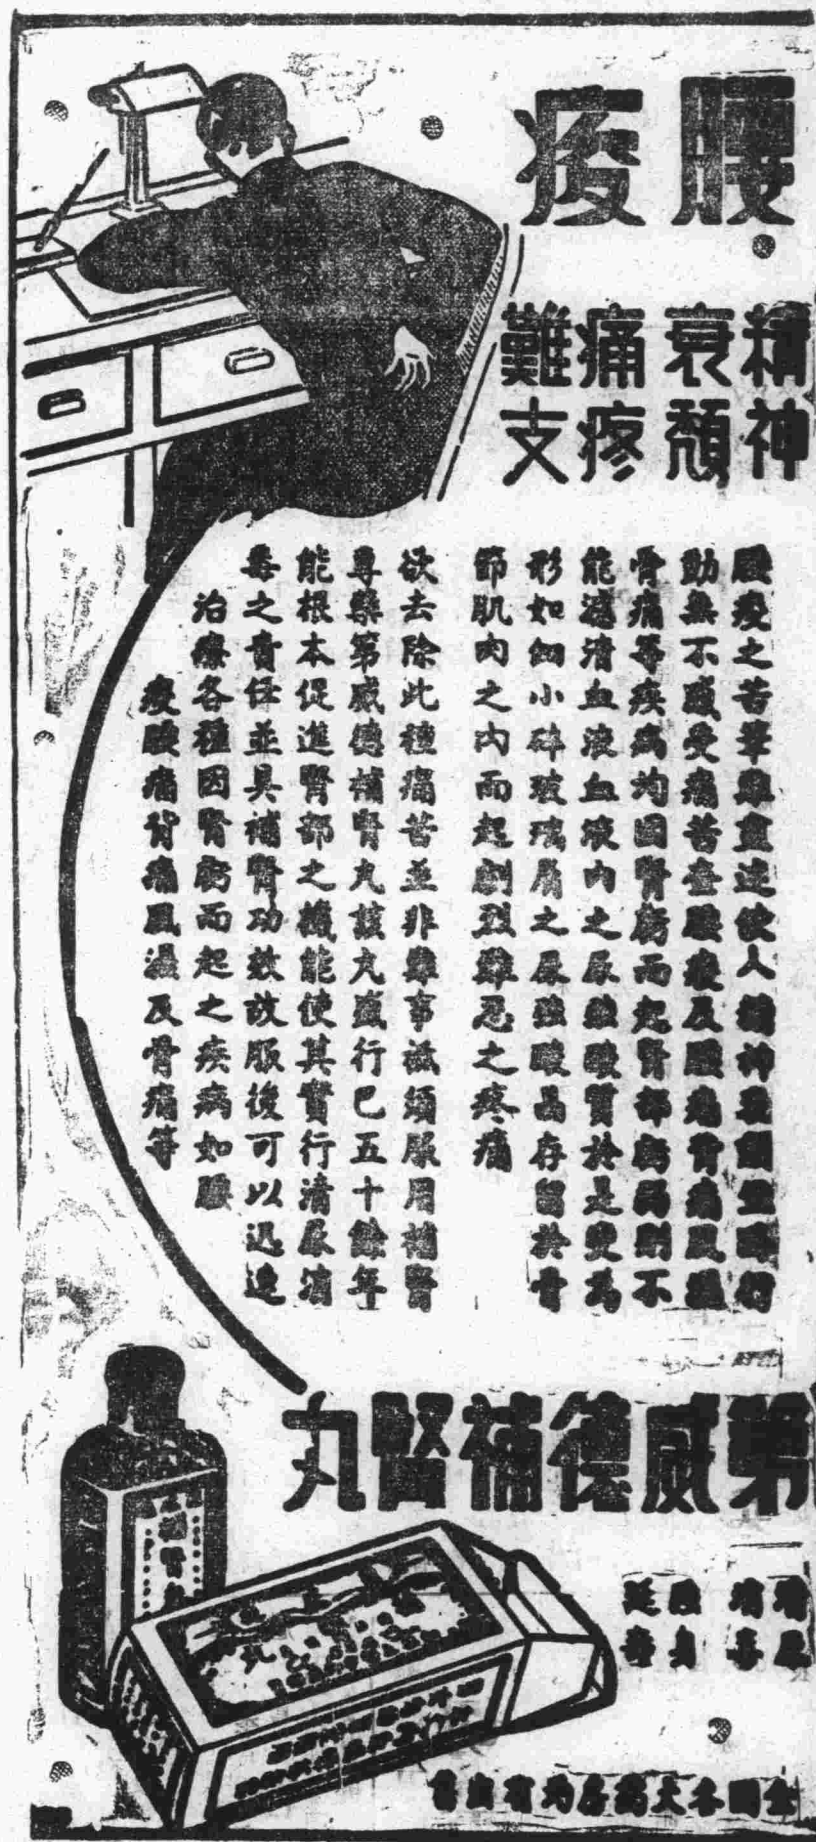 腰痠
精神
衰頹
痛疼
難支
腰痠之苦筆難盡述使人精神萎頓坐臥行
動無不感受痛苦查腰痠及腰痛背痛風濕
骨痛等疾病均因腎虧而起腎部虧弱則不
能濾清血液血液內之尿酸質於是變為
形如細小碎玻璃屑之尿酸晶存留於骨
節肌肉之內而起劇烈難忍之疼痛
欲去除此種痛苦並非難事祗須服用補腎
專藥第威德補腎丸該丸盛行已五十餘年
能根本促進腎部之機能使其實行清尿消
毒之責任並具補腎功效故服後可以迅速
治療各種因腎虧而起之疾病如腰
痠腰痛背痛風濕及骨痛等
第威德補腎丸
清尿
消毒
強身
延壽
全國各大藥房均有出售